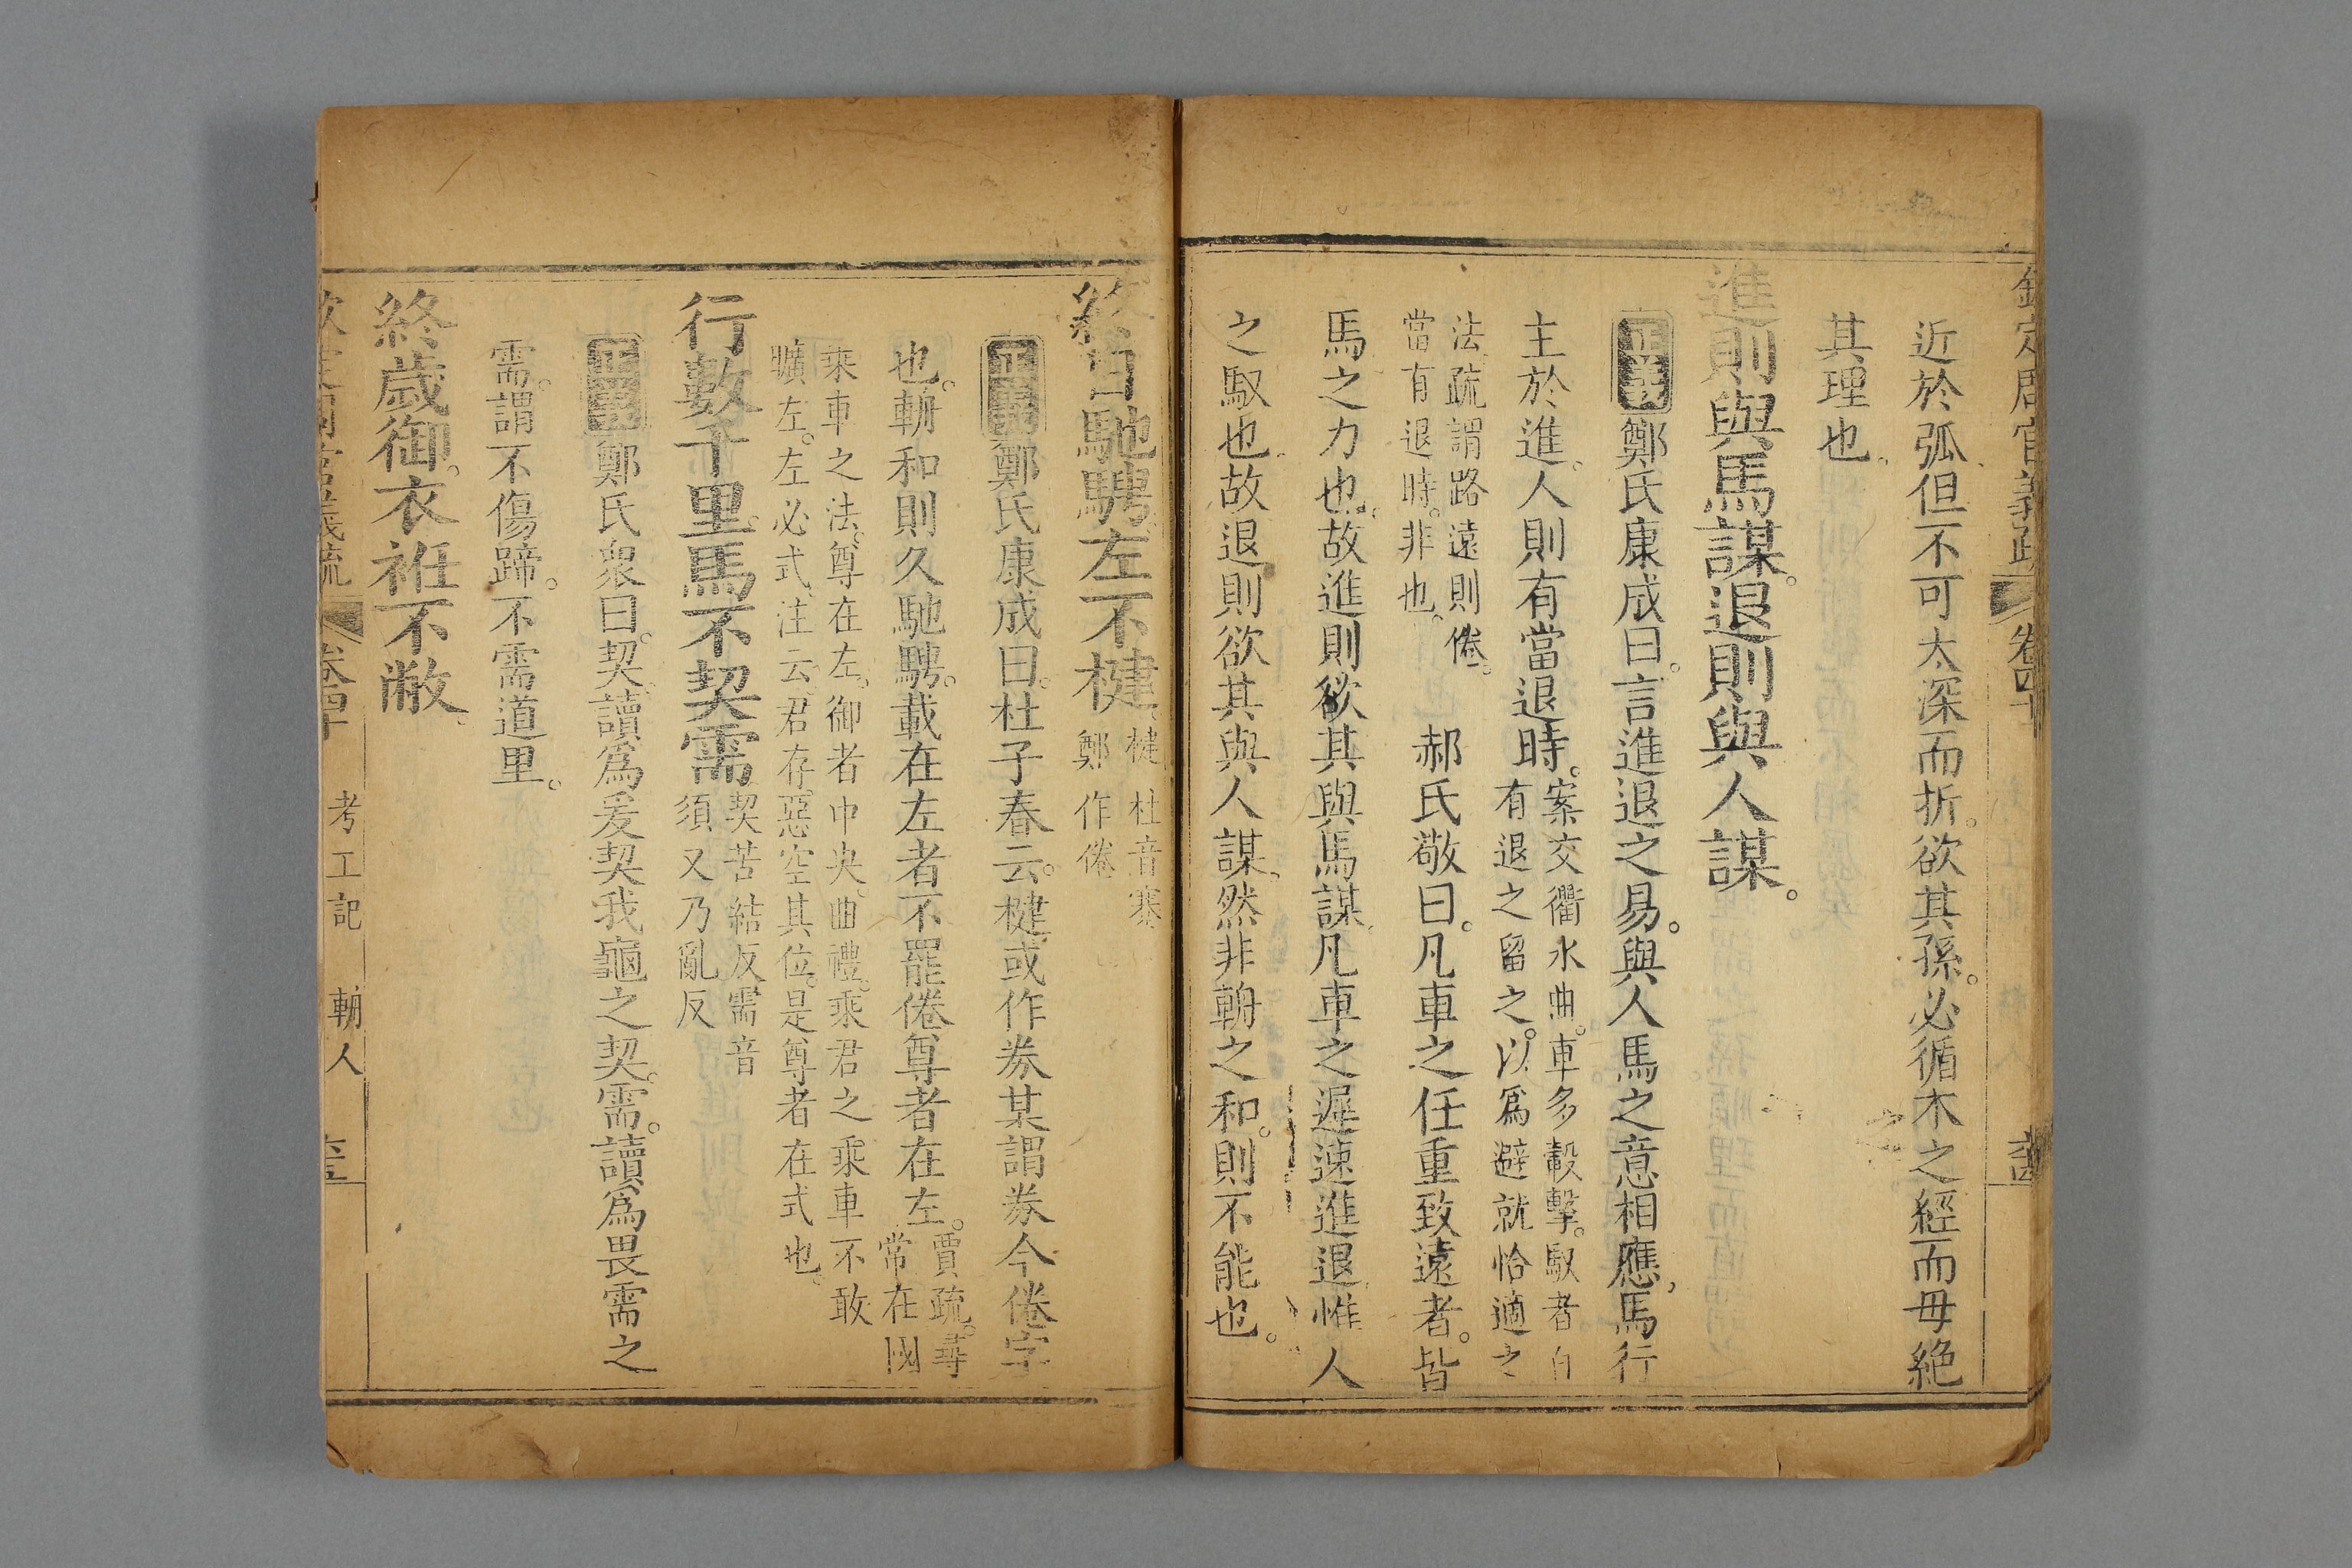 欽定周官義疏 卷四十
近於弧但不可太深而折。欲其孫。必循木之經而毋絶
其理也。
進則與馬謀。退則與人謀。
正義鄭氏康成曰。言進退之易。與人馬之意相應。馬行
主於進。人則有當退時。案交衢水曲。車多轂擊。馭者自
有退之留之。以爲避就恰適之
法。疏謂路遠則倦。
當有退時。非也。
郝氏敬曰。凡車之任重致遠者。皆
馬之力也。故進則欲其與馬謀。凡車之遲速進退。惟人
之馭也。故退則欲其與人謀。然非輈之和。則不能也。
終日馳騁。左不楗。楗杜音蹇
鄭作倦
正義鄭氏康成曰。杜子春云。楗或作券。某謂券今倦字
也。輈和則久馳騁。載在左者不罷倦。尊者在左。賈疏。尋
常在國
乘車之法。尊在左。御者中央。曲禮。乘君之乘車不敢
曠左。左必式。注云。君存。惡空其位。是尊者在式也。
行數千里。馬不契需。契苦結反需音
須又乃亂反
正義鄭氏衆曰。契。讀爲爰契我龜之契。需。讀爲畏需之
需。謂不傷蹄。不需道里。
終歲御。衣衽不敝。
欽定周官義疏 卷四十 考工記 輈人